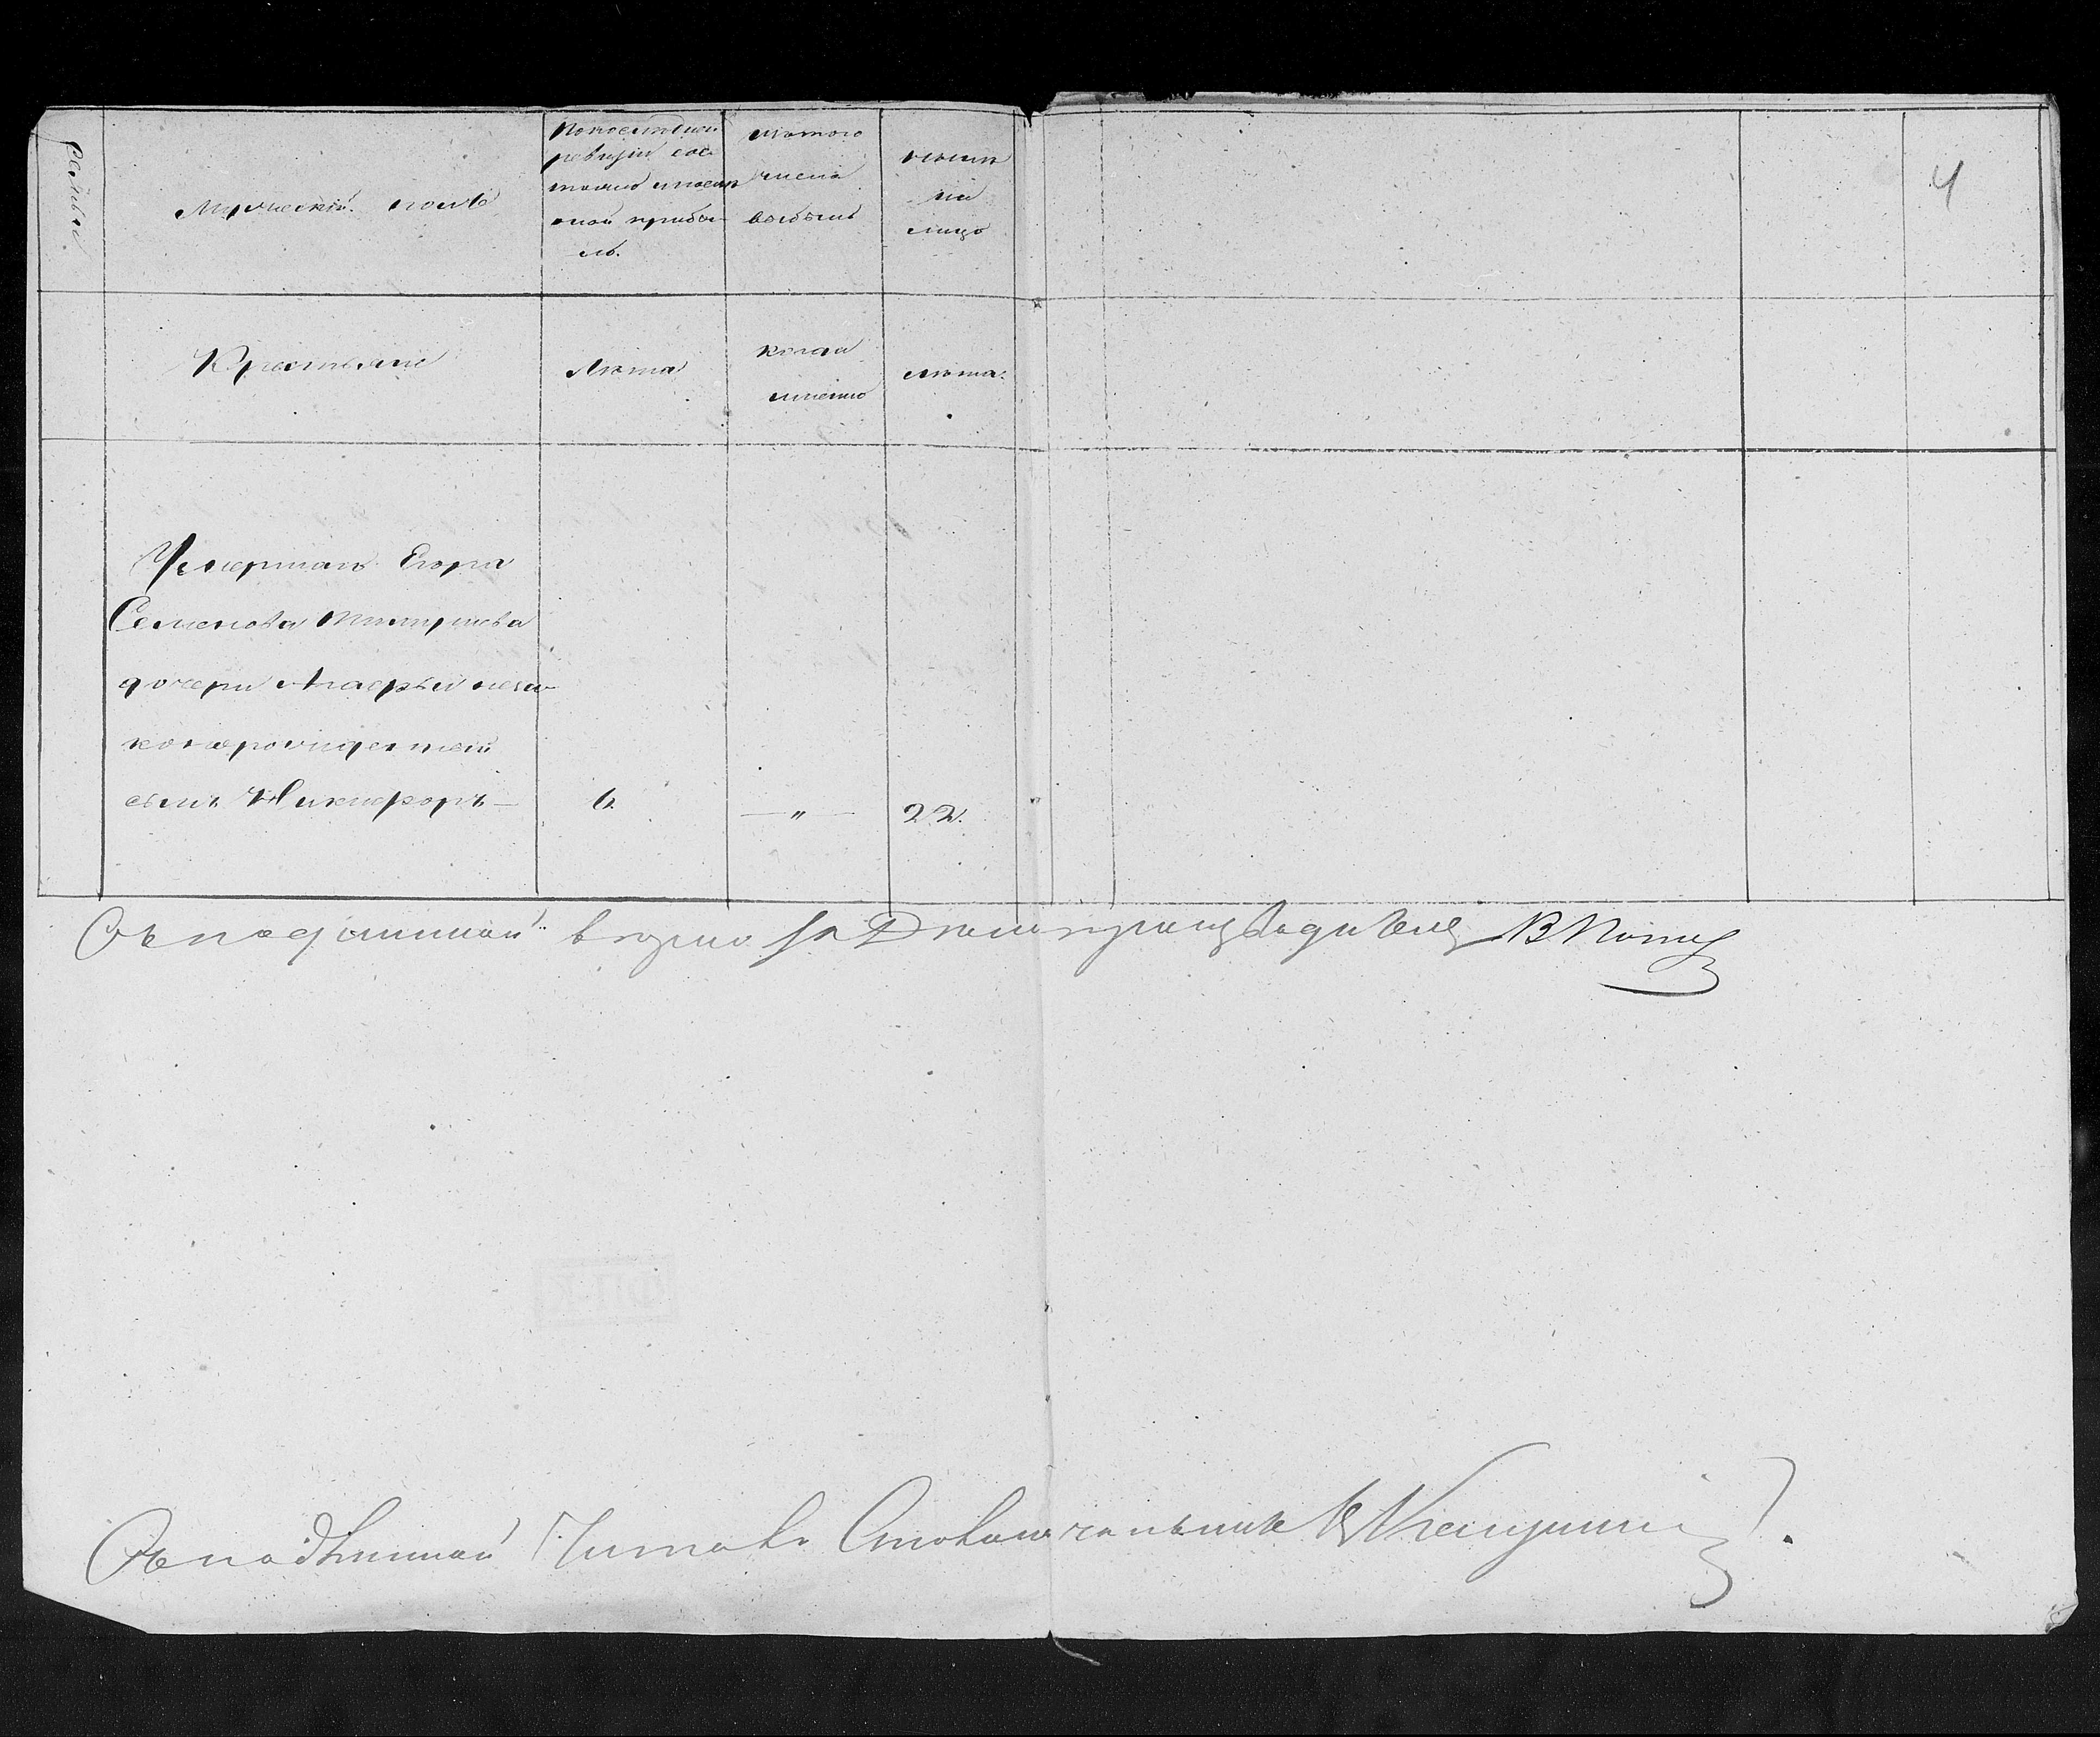 семьи
Мужескій полъ
По последней
ревизіи сос
тояло и после
оной прибы
ло.
Изтого
числа
выбыло
ныне
на
лицо
4
Крестьяне
Лета
когда
именно
лета.
Умершаго Егора
Семенова
дочери Агафьи неза
коннорожденный
сынъ Никифоръ —
6
— " —
22.
Съ подлинной верно за Делопроизводителя В
Съ подлинной Читалъ Столоначальникъ